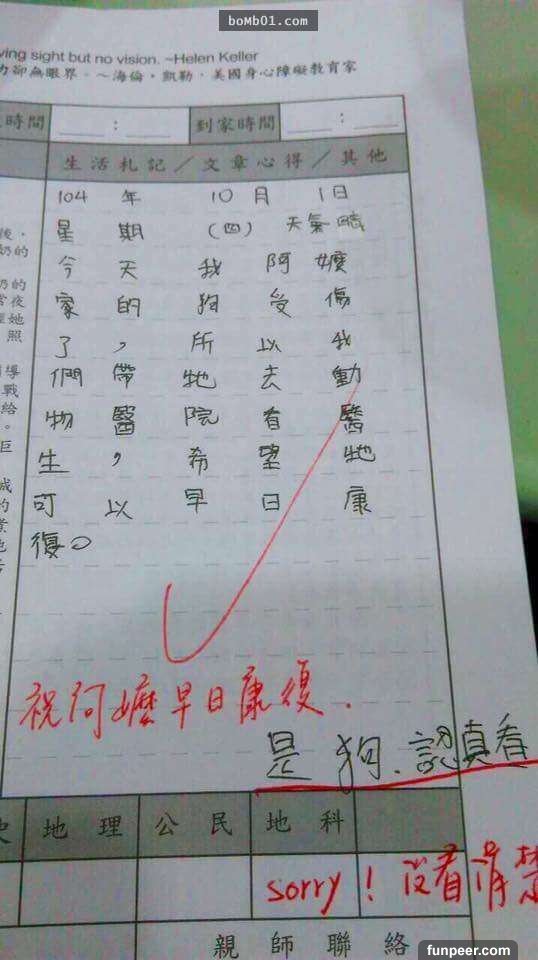 boMb01.com
ving sight but no vision. ~Helen Keller
力卻無眼界。～海倫．凱勒．美國身心障礙教育家
時間 ＿：＿ 到家時間 ＿：＿
生活札記／文章心得／其他
104 年 10 月 1 日
星期 (四) 天氣晴
今天我阿嬤
家的狗受傷
了，所以我
們帶牠去動
物醫院看醫
生，希望牠
可以早日康
復。
後，
奶的
奶的
常夜
她
照
導
戰
給
。
巨
成
的
業
祝阿嬤早日康復.
是狗.認真看
地理 公民 地科
sorry！沒看清楚
親師聯絡
funpeer.com